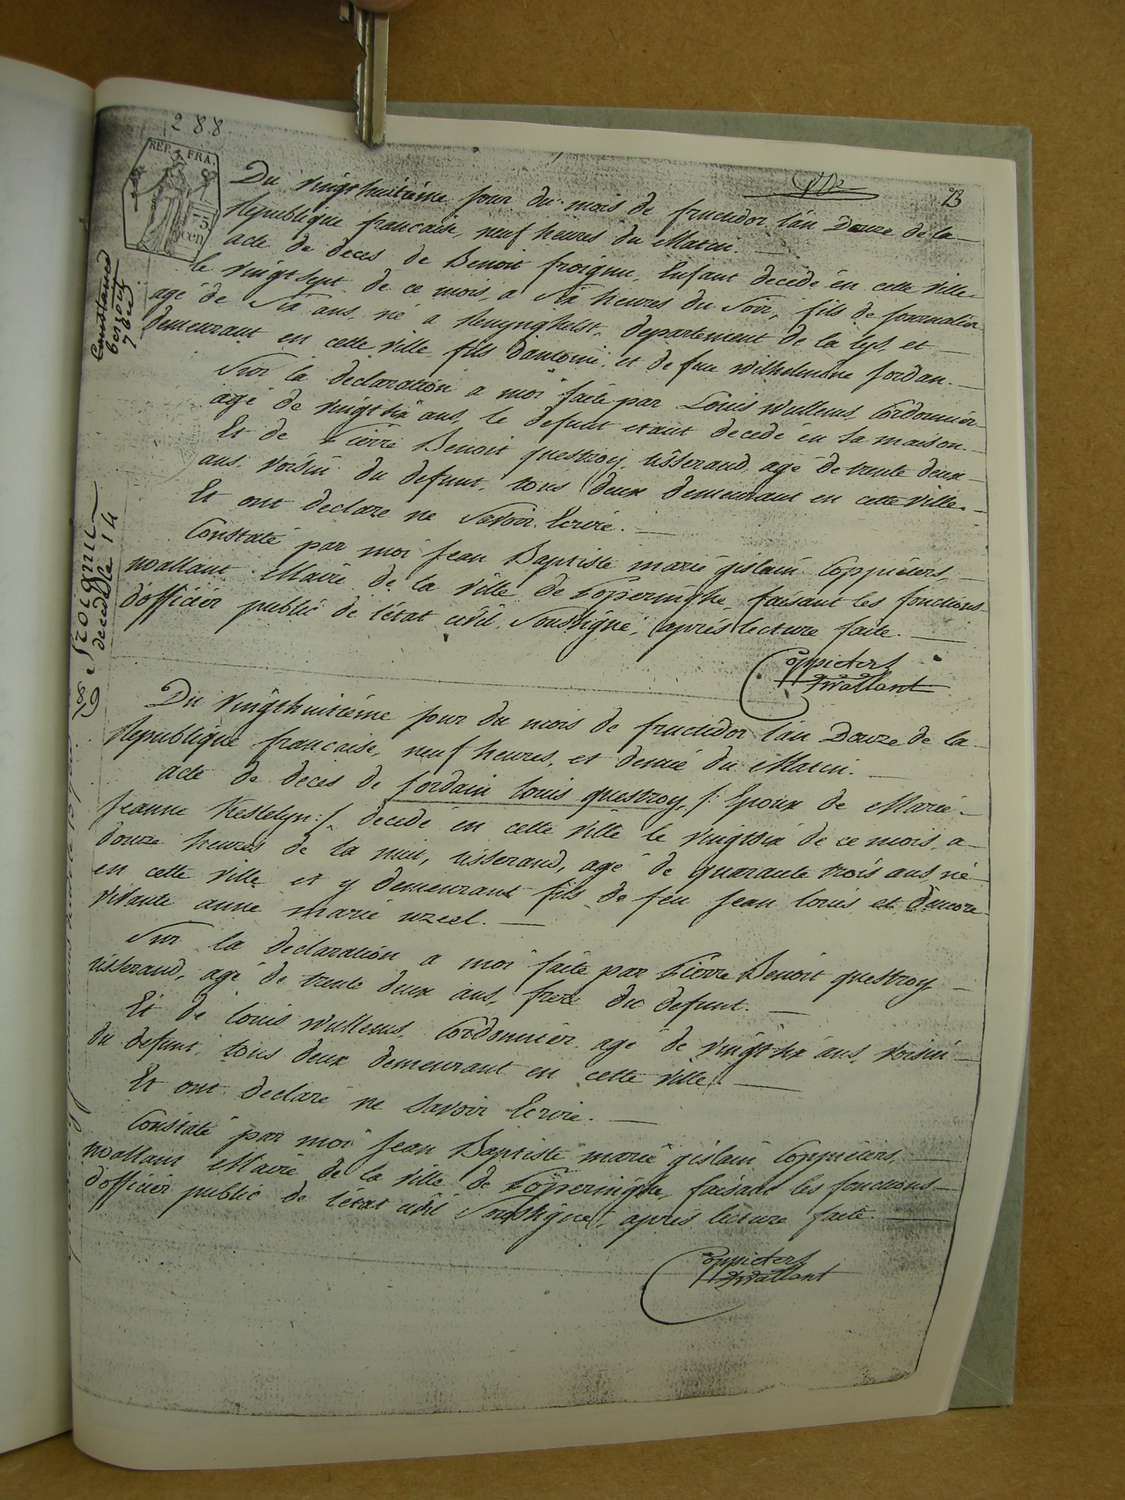 288
REP. FRA.
75
cen
23
Du vingt huitième jour du mois de fructidor l'an Douze de la
Republique francaise, neuf heures du Matin.
acte de deces de Benoit froigne, Enfant decedé en cette ville
le vingt sept de ce mois, a Six heures du Soir, fils de journalier
agé de Six ans, né a Renynghelst, departement de la Lys, et
demeurant en cette ville, fils d'antoine, et de feue wilhelmine Jordan.
Sur la declaration a moi faite par Louis wullems, Cordonnier
agé de vingt six ans, le defunt etant decedé en sa maison.
Et de Pierre Benoit questroy, tisserand, agé de trente deux
ans, voisin du defunt, tous deux demeurant en cette ville.
Et ont declare ne Savoir Ecrire.
Constaté par moi Jean Baptiste marie gislain Coppieters,
wallant Maire de la Ville de Poperinghe, faisant les fonctions
d'officier public de l'état civil, Soussigné, après lecture faite.
Coppieters
Wallant
Du vingt huitième jour du mois de fructidor l'an Douze de la
Republique francaise, neuf heures, et demie du Matin.
acte de deces de Jordain Louis questroy, /: Epoux de Marie
Jeanne Kestelyn :/ decedé en cette ville le vingt six de ce mois a
douze heures de la nuit, tisserand, agé de quarante trois ans, né
en cette ville et y demeurant fils de feu Jean Louis et d'encore
vivante anne marie uzeel.
Sur la declaration a moi faite par Pierre Benoit questroy
tisserand, agé de trente deux ans, frere du defunt.
Et de Louis wullems, Cordonnier, agé de vingt six ans, voisin
du defunt, tous deux demeurant en cette ville.
Et ont declaré ne Savoir Ecrire.
Constaté par moi Jean Baptiste marie gislain Coppieters,
wallant Maire de la Ville de Poperinghe, faisant les fonctions
d'officier public de l'état civil Soussigné, après lecture faite.
Coppieters
Wallant